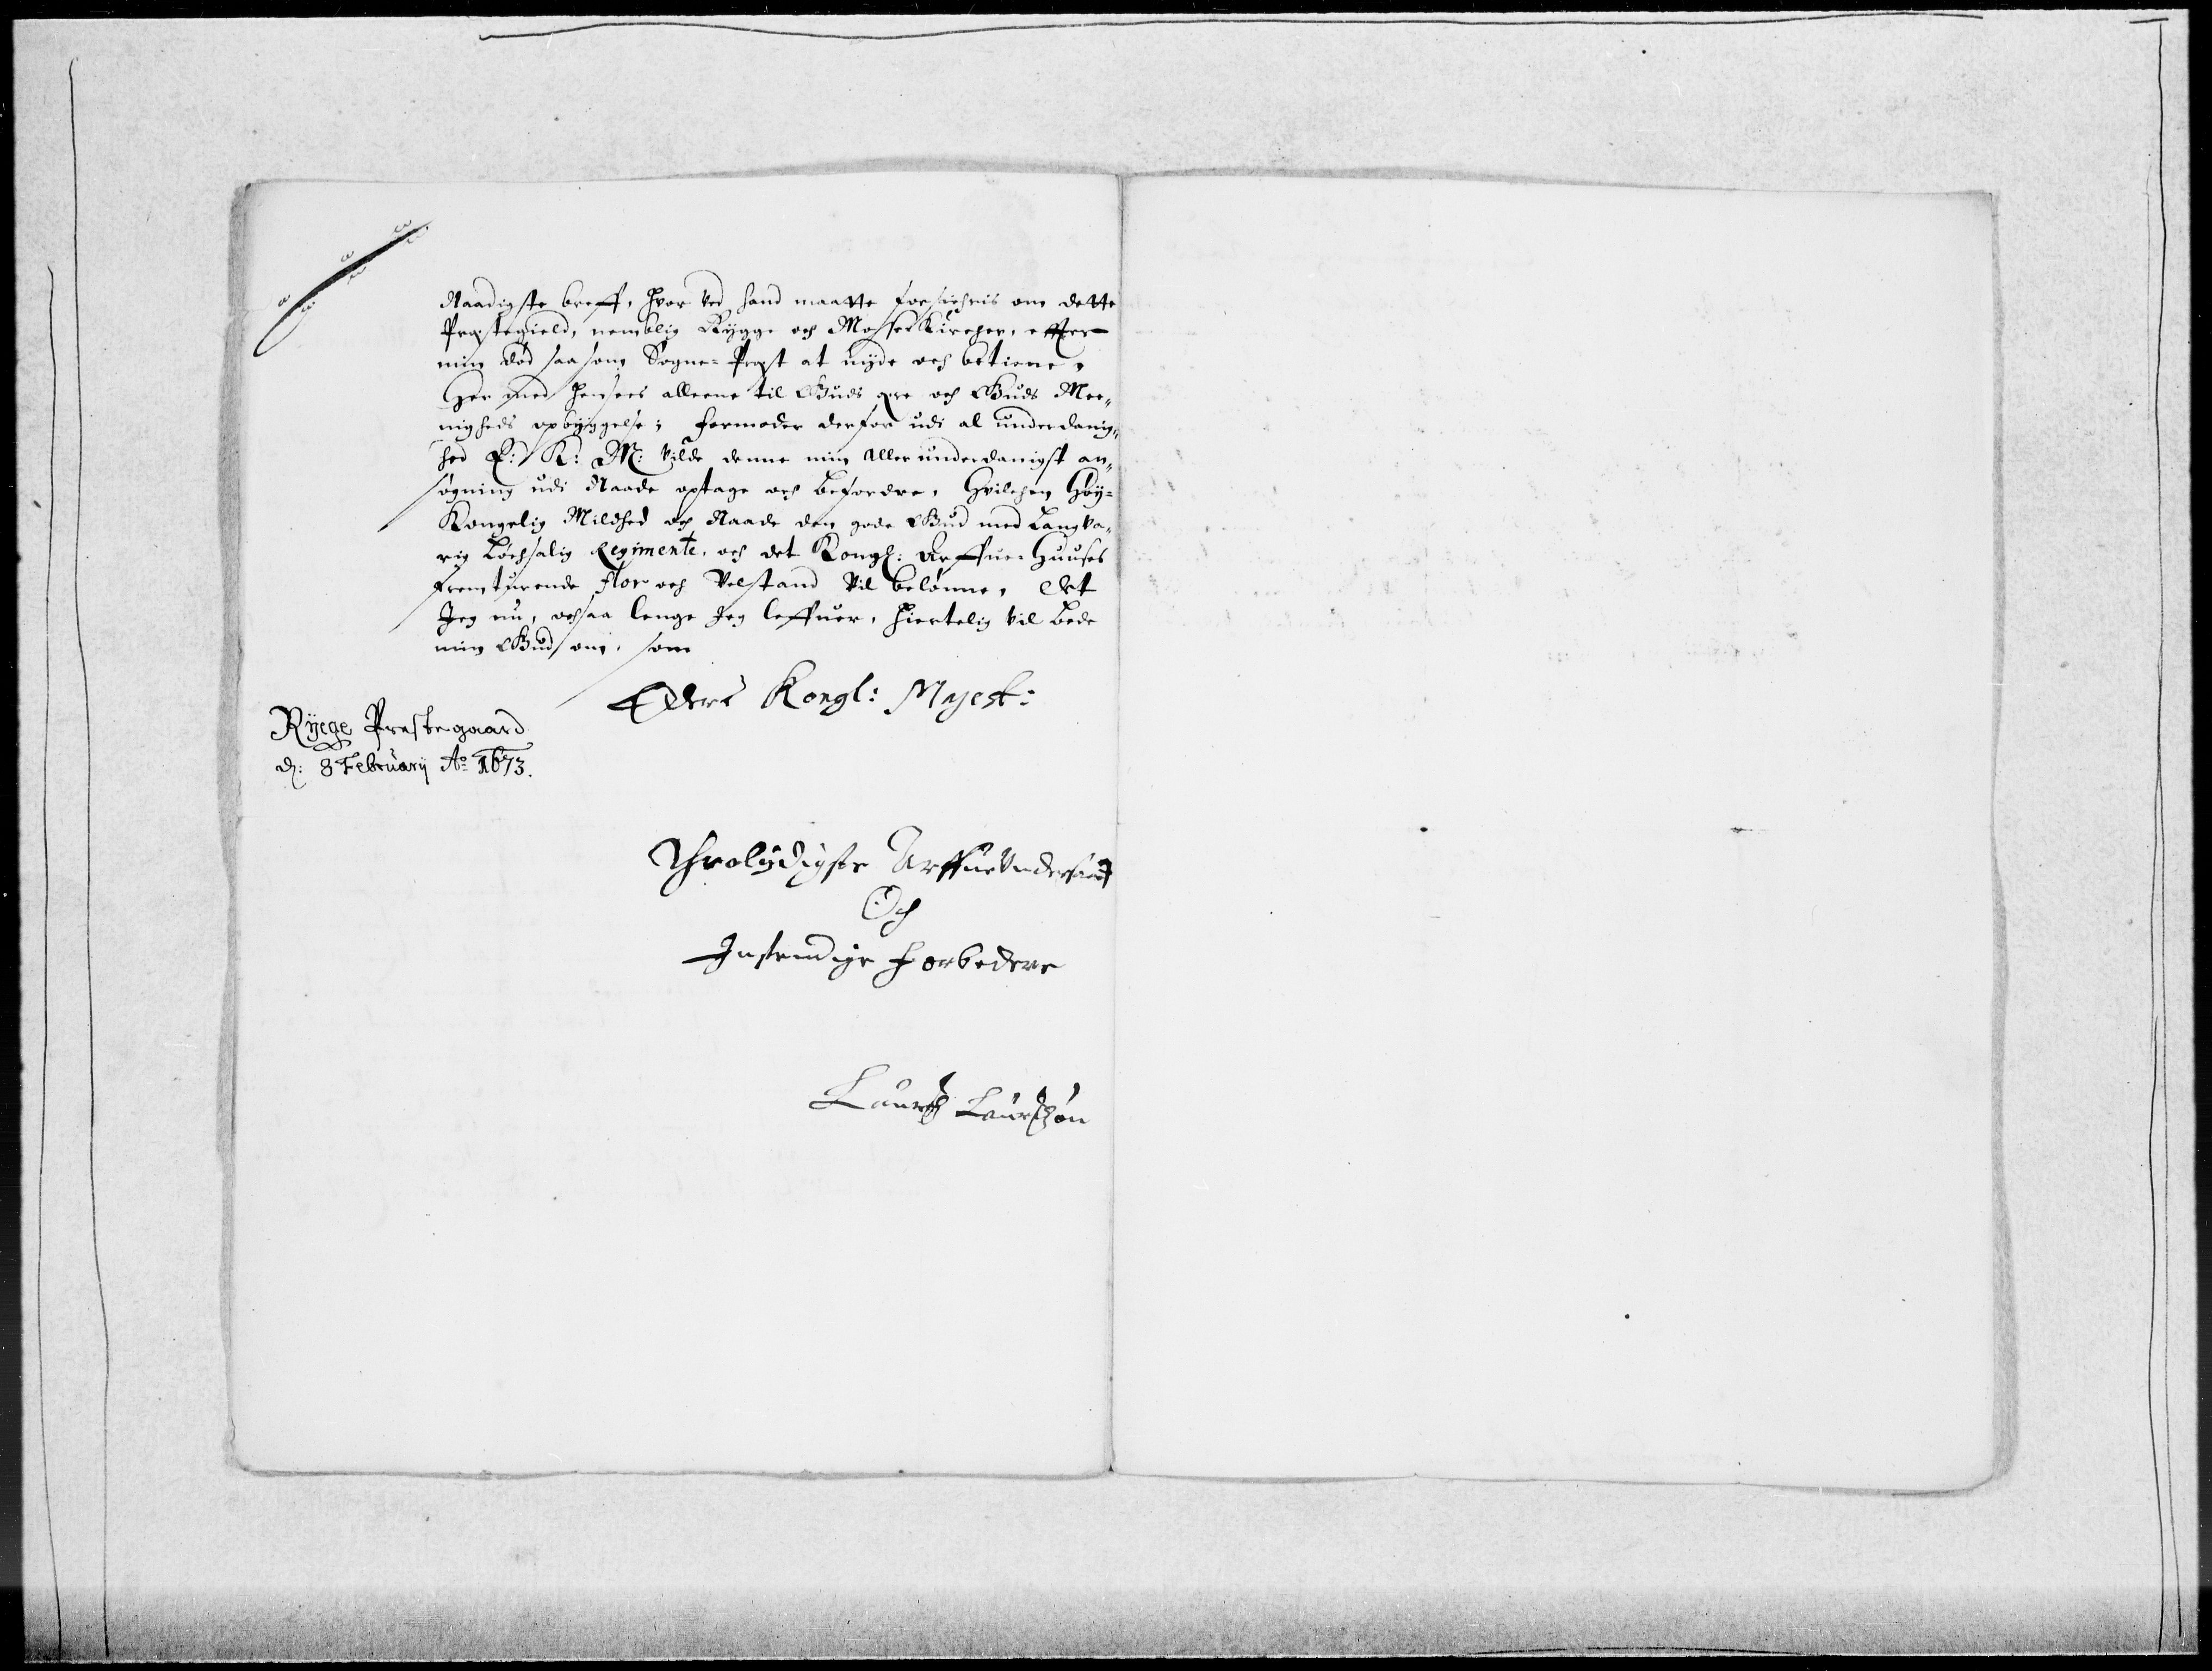 Naadigste breff, hvor ved hand maatte forsichris om dette
Præstegield, nemblig Rygge och Mosse Kircher, effter
min død saa som Sogne-Præst at nyde och betiene,
Her med hensees alleene til Guds ære och Guds Mee„
nigheds opbyggelse; formoder derfor udi al underdanig„
hed E: K: M: vilde denne min allerunderdanigst an„
søgning udi Naade optage och befordre, Hvilchen Høy-
Kongelig Mildhed och Naade den gode Gud med Langva„
rig Løchsalig Regimente, och det Kongl: Arffue Huuses
fremturende flor och Velstand vil belønne, Det
Jeg nu, och saa lenge Jeg leffuer, hiertelig vil bede
min Gud om, som
Eders Kongl: Majest:
Rygge Præstegaard
d: 8 Februarij Ao 1673.
Throlydigste Arffue Undersaat
Och
Instendige forbedere
Lauritz Lauritzøn